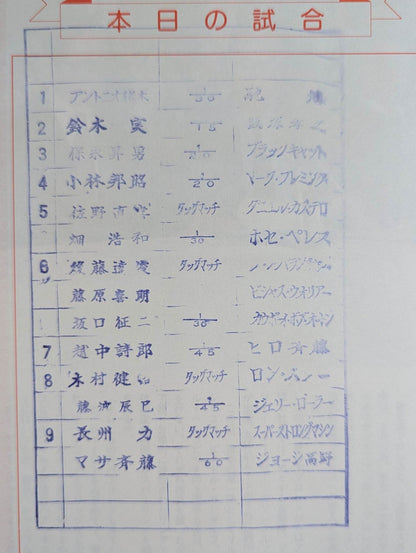 本日の試合
1 アントニオ猪木 1/30
2 鈴木 実 1/15
3 保永昇男 1/20 ブラックキャット
4 小林邦昭 1/20 マーク・フレミング
5 佐野直 タッグマッチ ダニエル・カステロ
畑 浩和 1/30 ホセ・ペレス
6 後藤達 タッグマッチ
藤原喜明 ビシャス・ウォリアー
坂口征二 1/30
7 越中詩郎 1/45 ヒロ斉藤
8 木村健 タッグマッチ ロン・
藤波辰巳 1/45 ジェリー・ローラー
9 長州 力 タッグマッチ スーパーストロングマシン
マサ斉藤 1/60 ジョージ高野